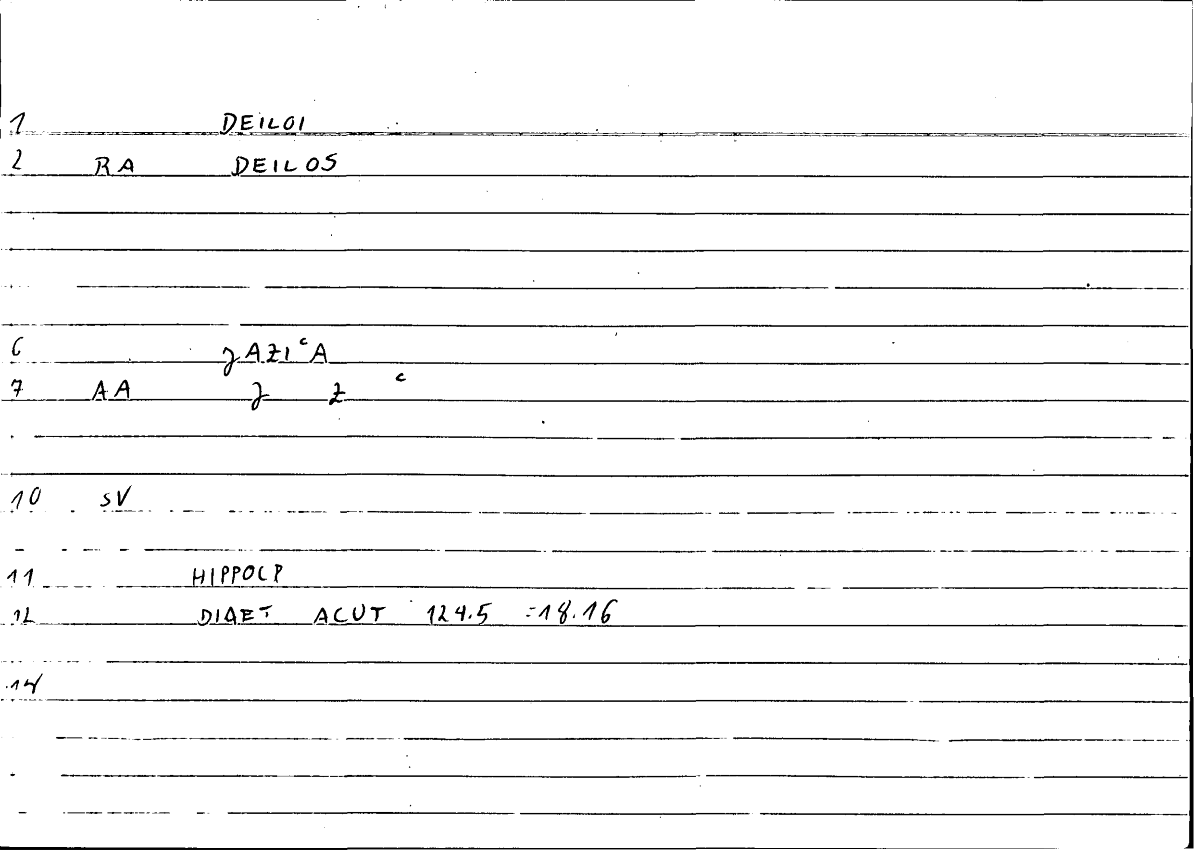 1 DEILOI
2 RA DEILOS
6 ʒAZIᶜA
7 AA ʒ Z ᶜ
10 SV
11 HIPPOCR
12 DIAET ACUT 124.5 =18.16
14